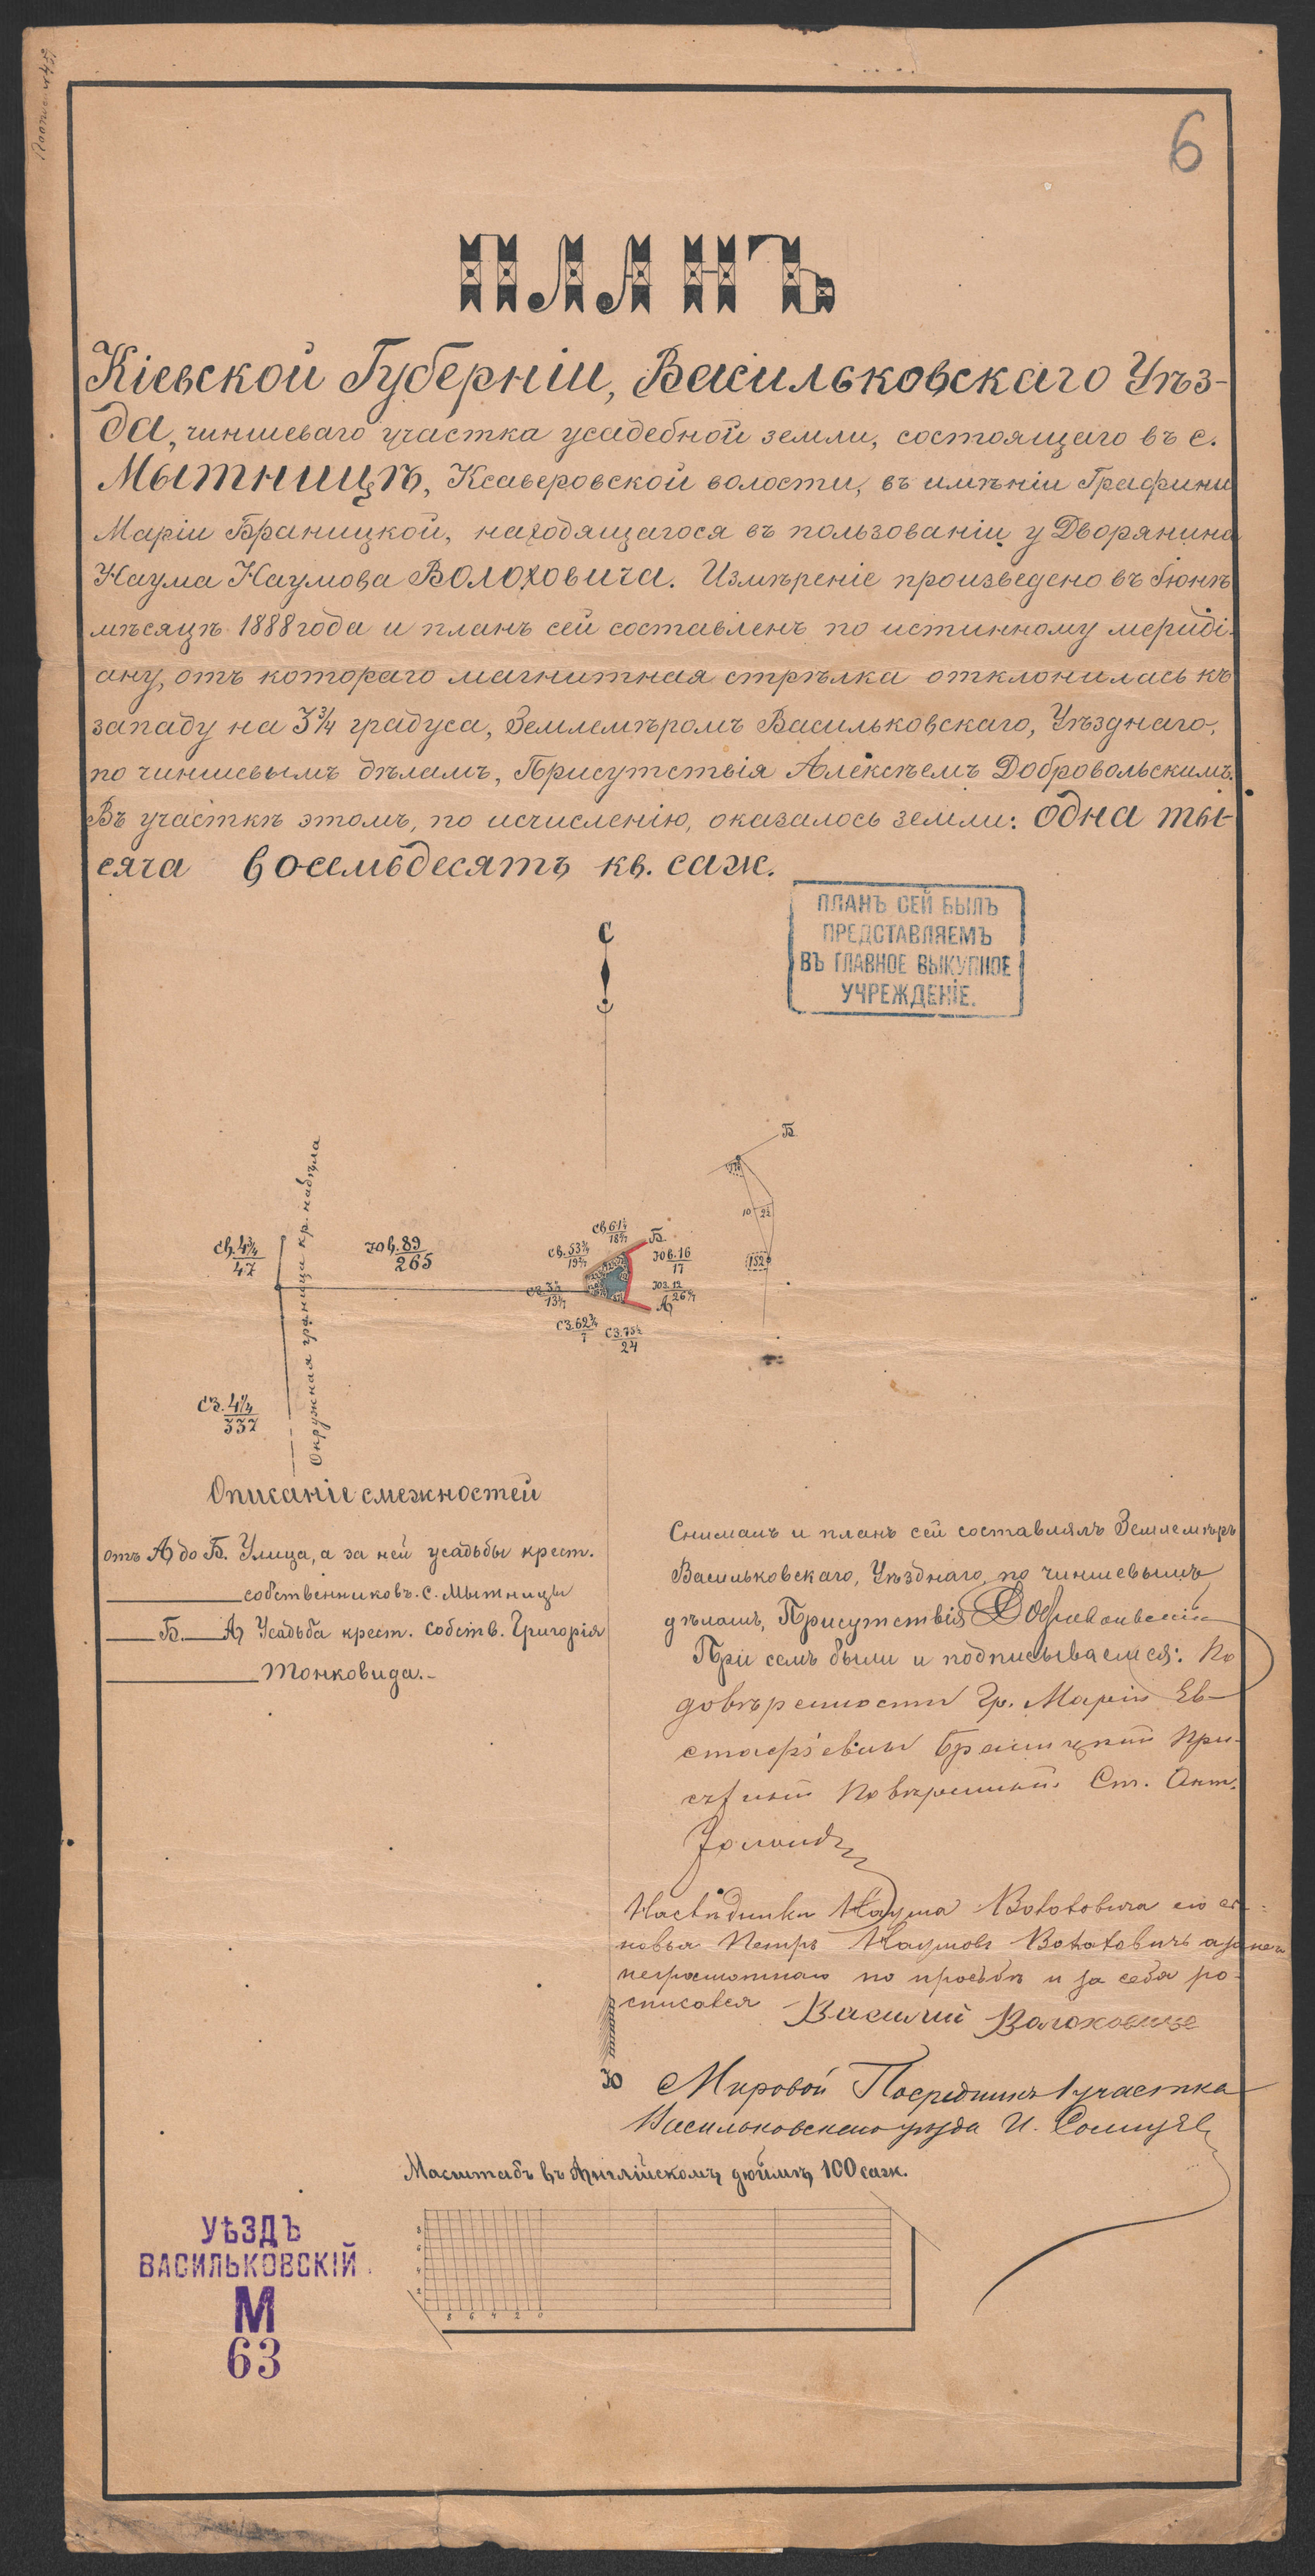 6
ПЛАНЪ
Кіевской Губерніи, Васильковскаго Уѣз-
да, чиншеваго участка усадебной земли, состоящаго въ с.
Мытницѣ, Ксаверовской волости, въ имѣніи Графини
Маріи Браницкой, находящагося въ пользованіи у Дворянина
Наума Наумова Волоховича. Измѣреніе произведено въ Іюнѣ
мѣсяцѣ 1888 года и планъ сей составленъ по истинному мериді-
ану, отъ котораго магнитная стрѣлка отклонилась къ
западу на 3¾ градуса, Землемѣромъ Васильковскаго, Уѣзднаго,
по чиншевымъ дѣламъ, Присутствія Алексѣемъ Добровольскимъ.
Въ участкѣ этомъ, по исчисленію, оказалось земли: одна ты-
сяча восемьдесятъ кв. саж.
ПЛАНЪ СЕЙ БЫЛЪ
ПРЕДСТАВЛЯЕМЪ
ВЪ ГЛАВНОЕ ВЫКУПНОЕ
УЧРЕЖДЕНІЕ.
С
Б
10 2½
152
СВ. 4¾
47
ЮВ. 89
265
Окружная граница кр. надѣла
СВ. 61¼
18½
СВ. 53¾
19½
Б.
ЮВ. 16
17
ЮЗ. 12
26½
А
СЗ. 62¾
7
СЗ. 75½
24
СЗ. 4¼
337
Описаніе смежностей
отъ А до Б. Улица, а за ней усадьбы крест.
собственниковъ. с. Мытницы
Б. А Усадьба крест. собств. Григорія
Тонковида.-
Снималъ и планъ сей составлялъ Землемѣръ
Васильковскаго, Уѣзднаго, по чиншевымъ
дѣламъ, Присутствія Добровольскій
При семъ были и подписываемся: По
довѣренности Гр. Маріи Ев-
стафіевны Браницкой При-
сяжный Повѣренный Ст. Ант.
Наслѣдники Наума Волоховича его сы-
новья Петръ Наумовъ Волоховичъ а за него
неграмотнаго по просьбѣ и за себя ро-
списался Василий Волоховичъ
Ю
Мировой Посредникъ 1 участка
Васильковскаго уѣзда И.
Масштабъ въ Англійскомъ дюймѣ 100 саж.
8
6
4
2
8 6 4 2 0
УѢЗДЪ
ВАСИЛЬКОВСКІЙ.
М
63